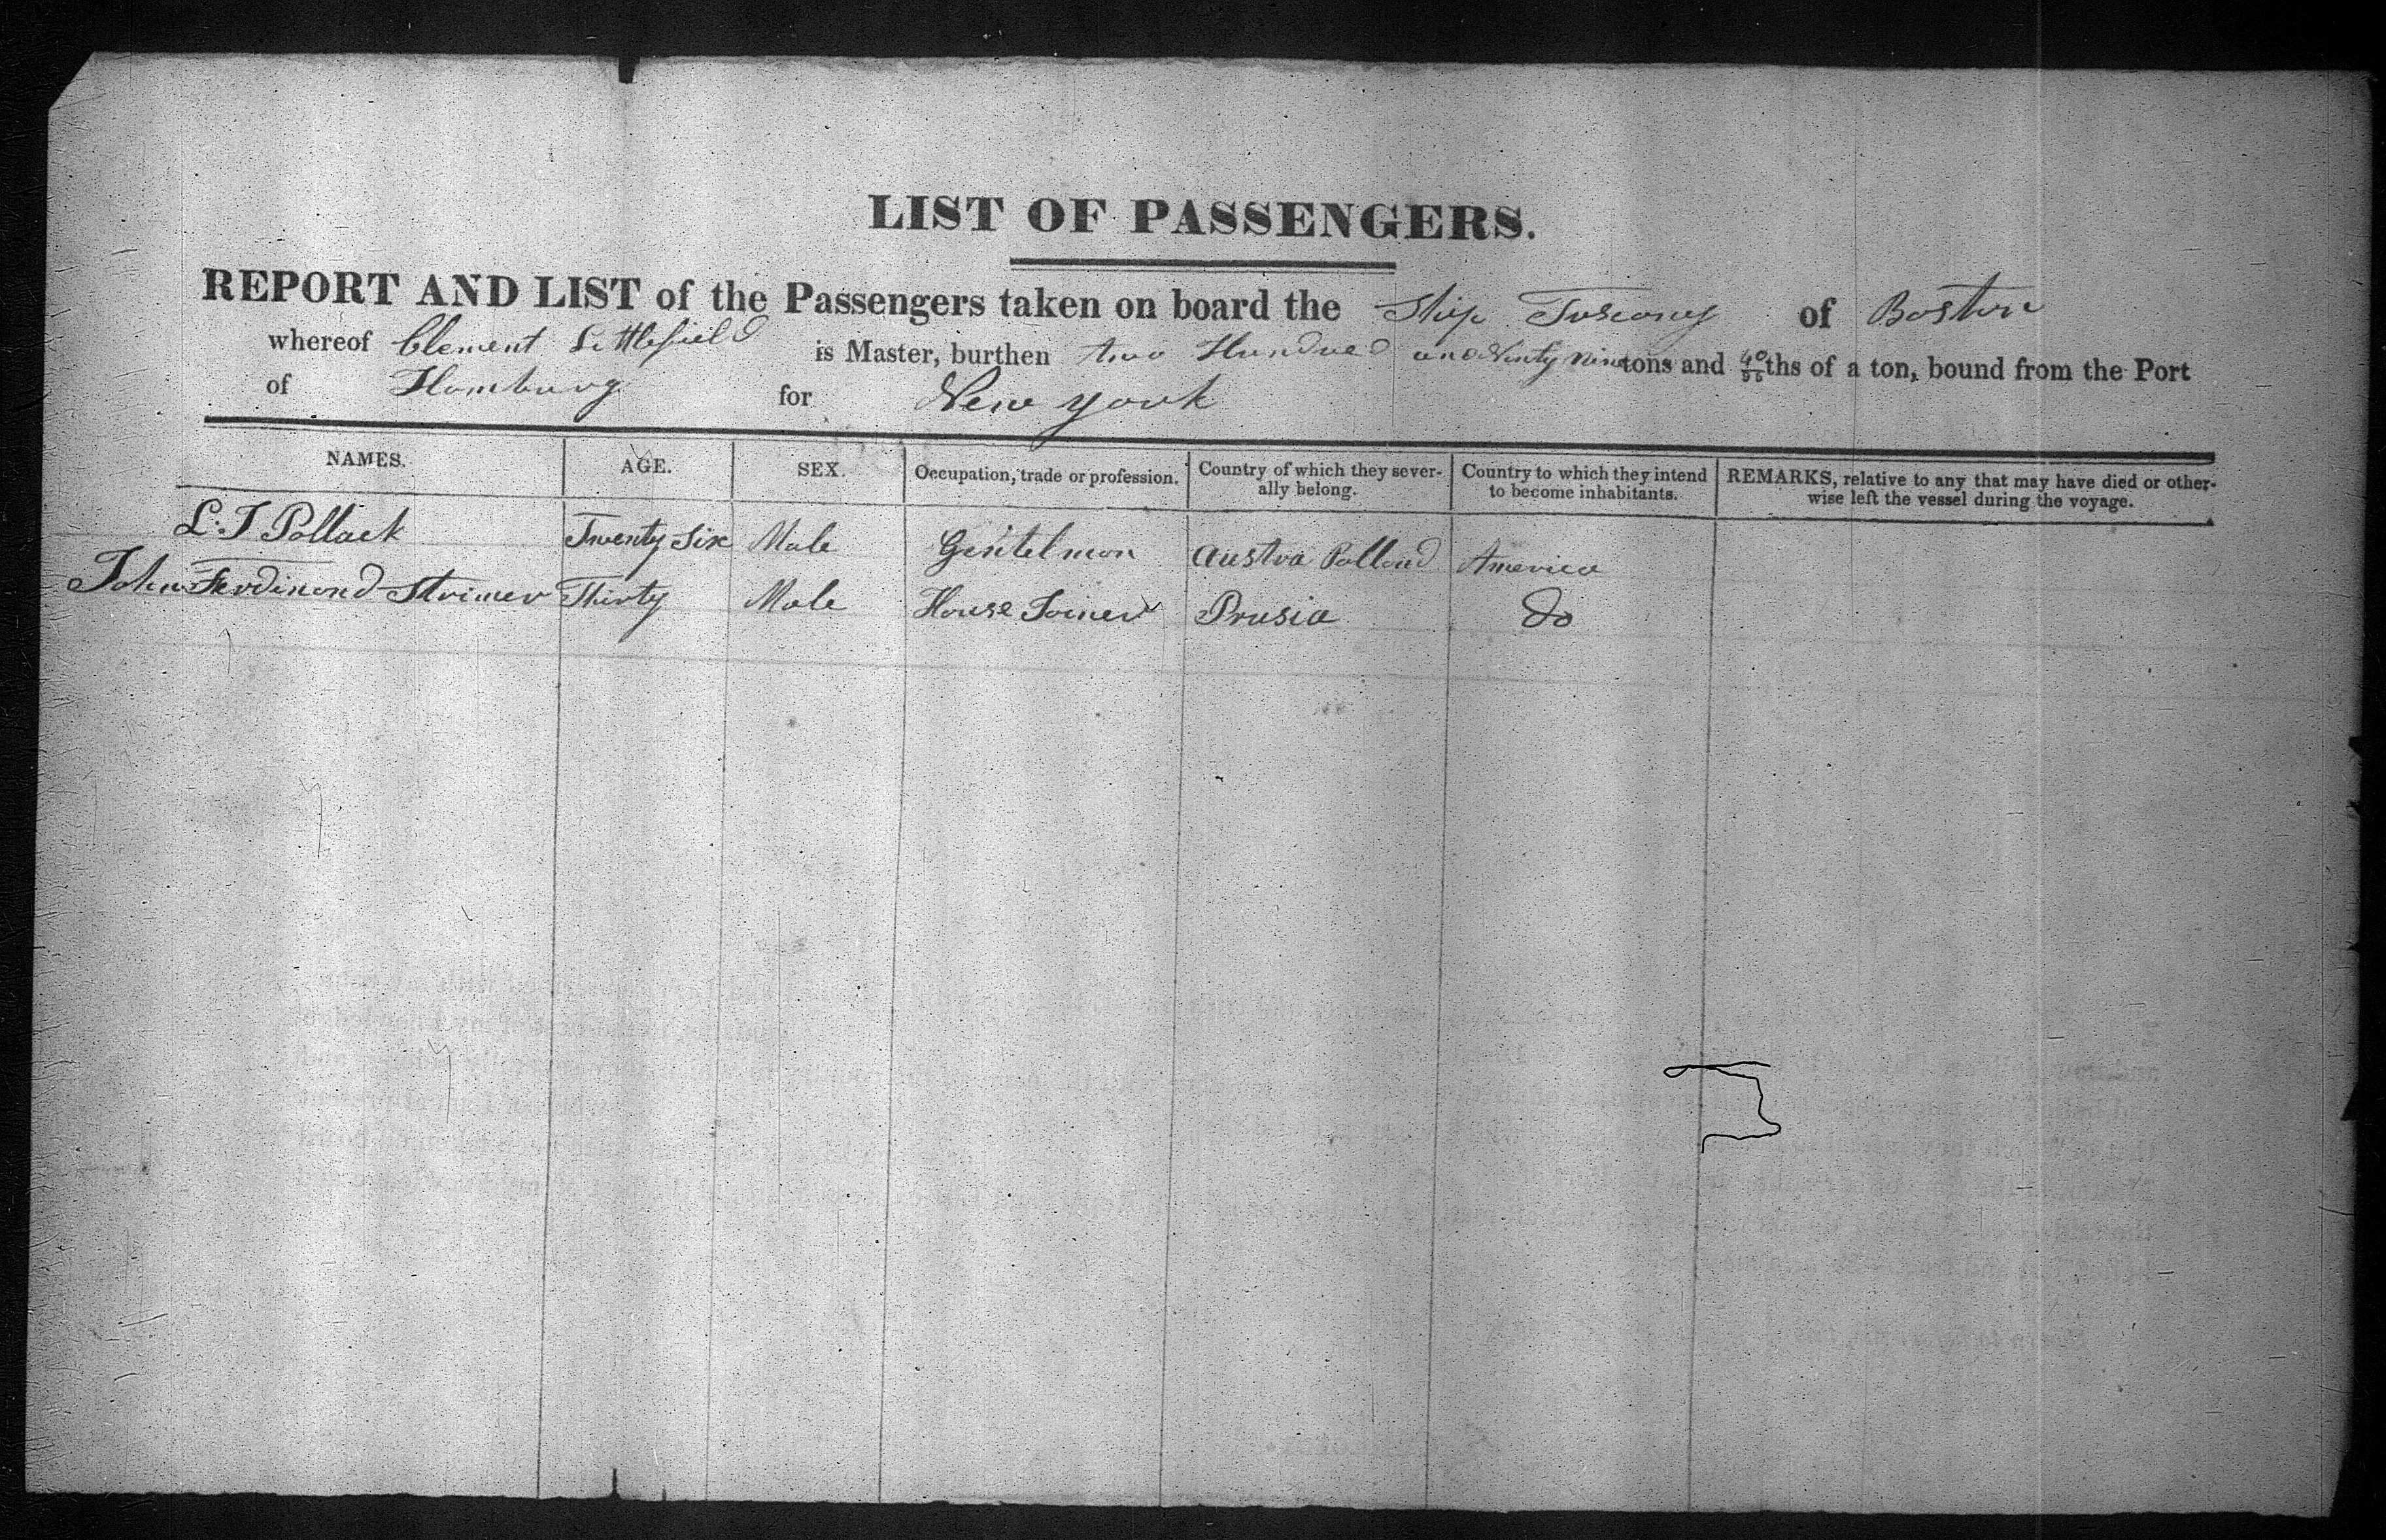 LIST OF PASSENGERS.
REPORT AND LIST of the Passengers taken on board the Ship Tuscany of Boston
whereof Clement Littlefield is Master, burthen two Hundred and Ninty nine tons and 40/95ths of a ton, bound from the Port
of Hamburg for New York
NAMES. AGE. SEX. Occupation, trade or profession. Country of which they severally belong. Country to which they intend to become inhabitants. REMARKS, relative to any that may have died or otherwise left the vessel during the voyage.
L. J Pollack Twenty Six Male Gentelman Austra Polland America
John Ferdinand Strimer Thirty Male House Joiner Prusia Do